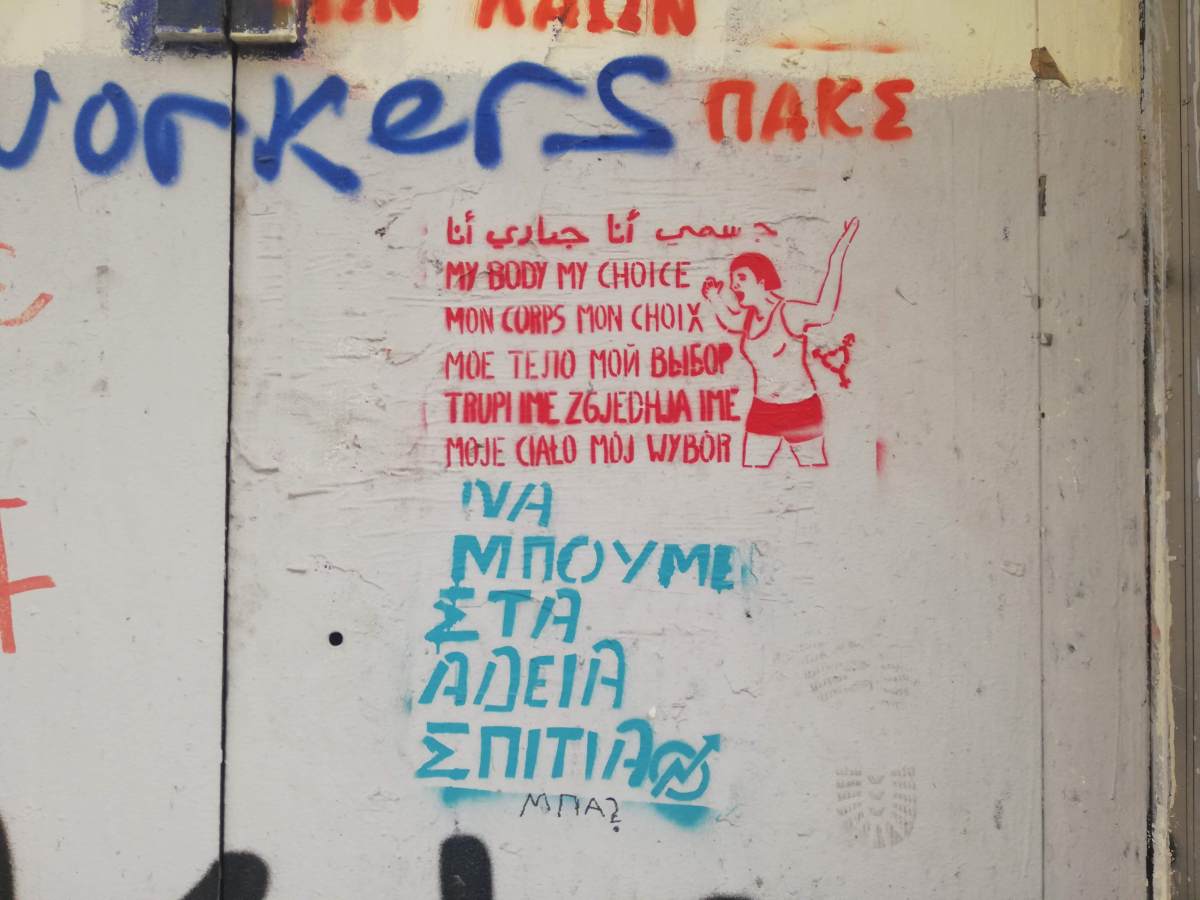 ΛΑΩΝ
workers ΠΑΚΣ
جسمي أنا خياري أنا
MY BODY MY CHOICE
MON CORPS MON CHOIX
МОЕ ТЕЛО МОЙ ВЫБОР
TRUPI IME ZGJEDHJA IME
MOJE CIAŁO MÓJ WYBÓR
ΝΑ
ΜΠΟΥΜΕ
ΣΤΑ
ΑΔΕΙΑ
ΣΠΙΤΙΑ
ΜΠΑ?